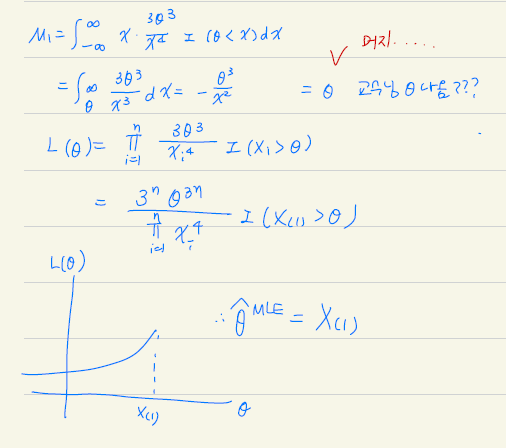 M₁ = ∫_{-∞}^{∞} x · 3θ³/x⁴ I (θ < x) dx
✓ 머지.....
= ∫_θ^∞ 3θ³/x³ dx = - θ³/x² = θ 교수님 θ 나옴???
L(θ) = ∏_{i=1}^n 3θ³/x_i⁴ I (X_i > θ)
= 3ⁿ θ³ⁿ / ∏_{i=1}^n x_i⁴ I (X₍₁₎ > θ)
L(θ)
∴ θ̂^{MLE} = X₍₁₎
X₍₁₎ θ